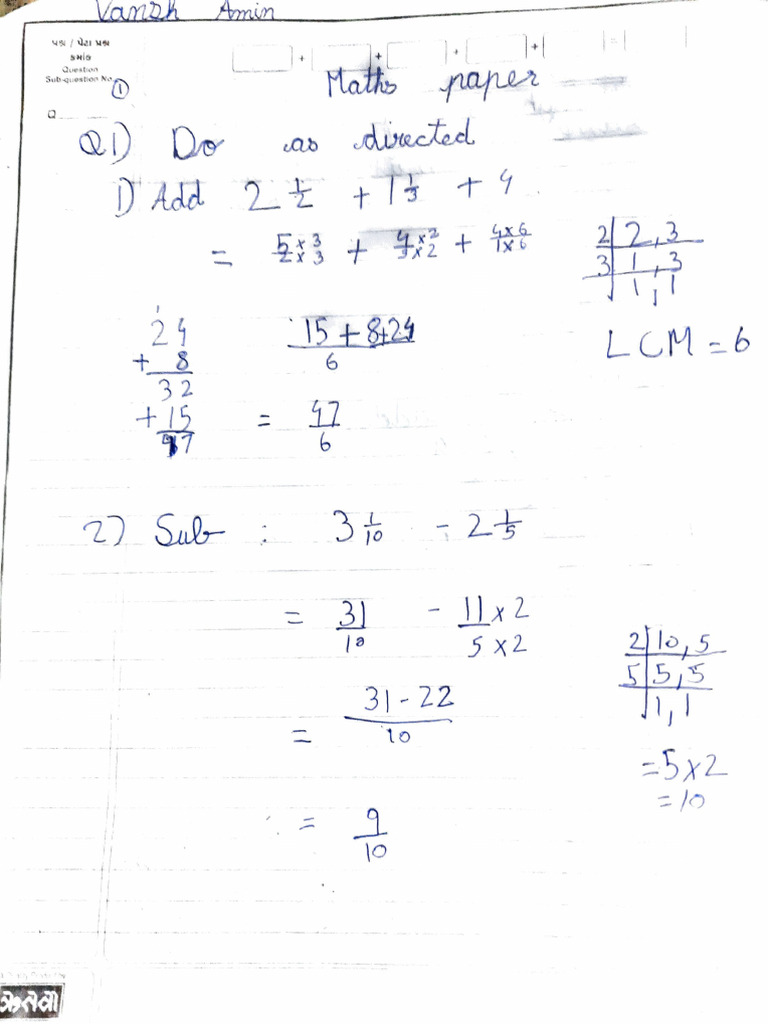 Vanzh Amin
પ્રશ્ન / પેટા પ્રશ્ન
ક્રમાંક
Question
Sub-question No.
①
Q
+ + + + =
Maths paper
Q1) Do as directed
1) Add 2 1/2 + 1 1/3 + 4
= 5×3/2×3 + 4×2/3×2 + 4×6/1×6
2 | 2, 3
3 | 1, 3
1, 1
LCM = 6
15 + 8+24/6
1
24
+ 8
32
+ 15
47
= 47/6
2) Sub : 3 1/10 - 2 1/5
= 31/10 - 11×2/5×2
2 | 10, 5
5 | 5, 5
1, 1
= 5×2
= 10
= 31-22/10
∴ = 9/10